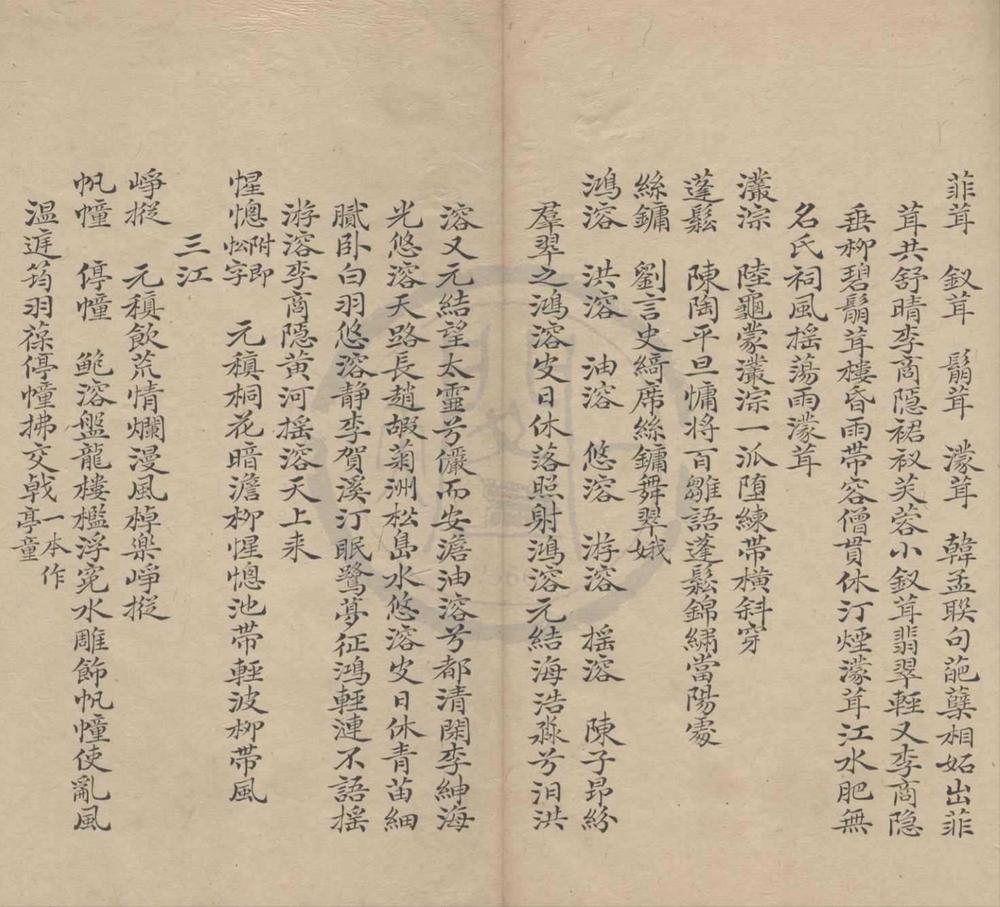 菲茸　釵茸　鬅茸　濛茸　韓孟聯句葩蘖相妬出菲
茸共舒晴李商隱裙衩芙蓉小釵茸翡翠輕又李商隐
垂柳碧鬅茸樓昏雨帶容僧貫休汀煙濛茸江水肥無
名氏祠風摇蕩雨濛茸
灇淙　陸龜蒙灇淙一派堕練帶橫斜穿
蓬鬆　陳陶平旦慵将百雛語蓬鬆錦繡當陽處
絲鏞　劉言史綺席絲鏞舞翠娥
鴻溶　洪溶　油溶　悠溶　游溶　摇溶　陳子昂紛
羣翠之鴻溶皮日休落照射鴻溶元結海浩淼兮汩洪
溶又元結望太靈兮儼而安澹油溶兮都清閑李紳海
光悠溶天路長趙嘏菊洲松島水悠溶皮日休青苗細
膩卧白羽悠溶静李賀溪汀眠鷺夢征鴻輕漣不語摇
游溶李商隱黄河摇溶天上来
惺憁附即忪字　元稹桐花暗澹柳惺憁池帶輕波柳帶風
三江
崢摐　元稹飲荒情爛漫風棹樂崢摐
帆幢　停幢　鮑溶盤龍樓檻浮寃水雕飾帆幢使亂風
温庭筠羽葆停幢拂交戟一本作亭童